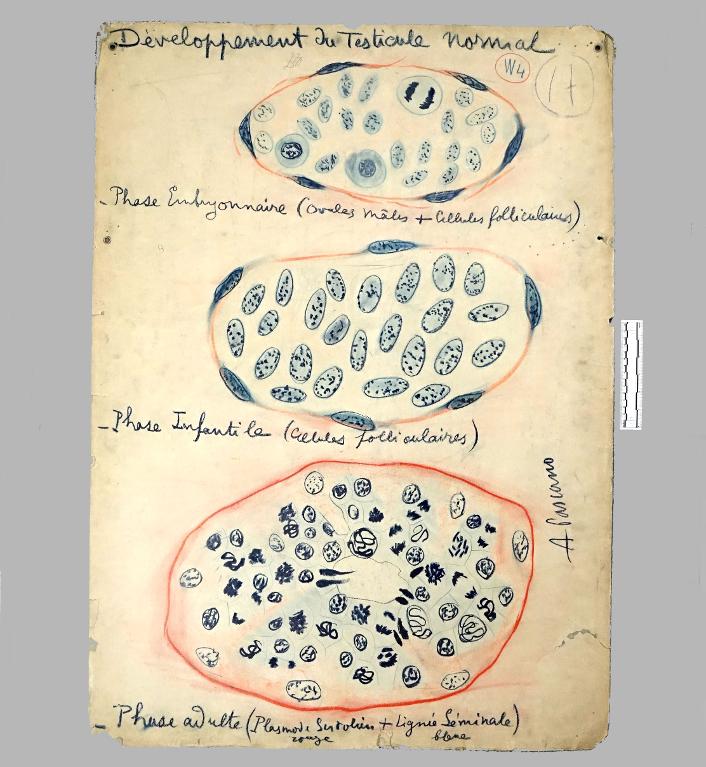 Développement du Testicule normal
W4
17
- Phase Embryonnaire (ovules mâles + Cellules folliculaires)
- Phase Infantile (Cellules folliculaires)
A Pasciano
- Phase adulte (Plasmode Sertolien + Lignée Séminale)
rouge bleue